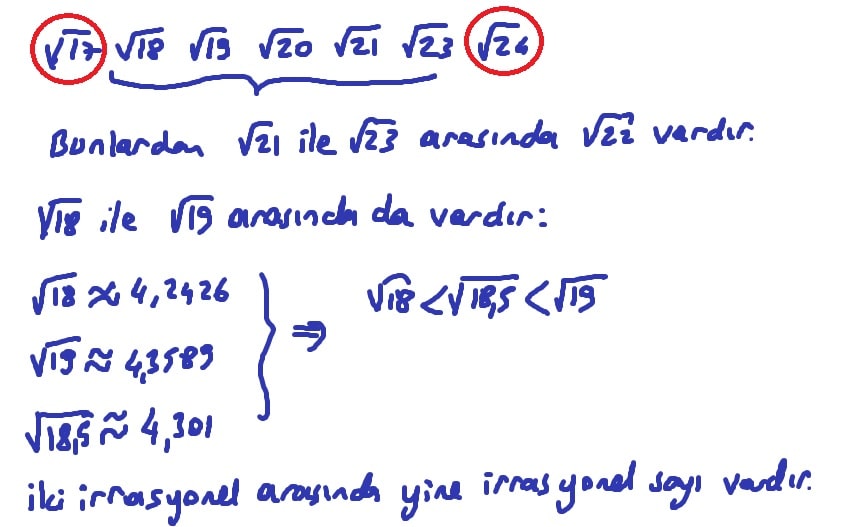 √17 √18 √19 √20 √21 √23 √24
Bunlardan √21 ile √23 arasında √22 vardır.
√18 ile √19 arasında da vardır:
√18 ≈ 4,2426
√19 ≈ 4,3589
√18,5 ≈ 4,301
⇒ √18 < √18,5 < √19
iki irrasyonel arasında yine irrasyonel sayı vardır.